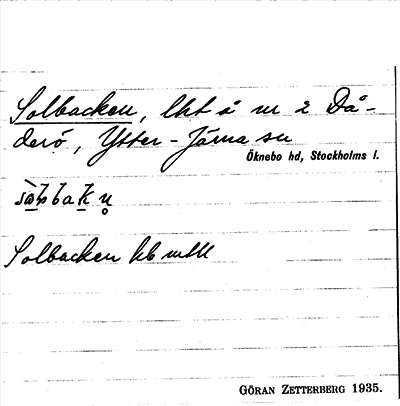 Solbacken, lht å nr 2 Då-
derö, Ytter-Järna sn
Öknebo hd, Stockholms l.
Solbacken kb mtl
GÖRAN ZETTERBERG 1935.